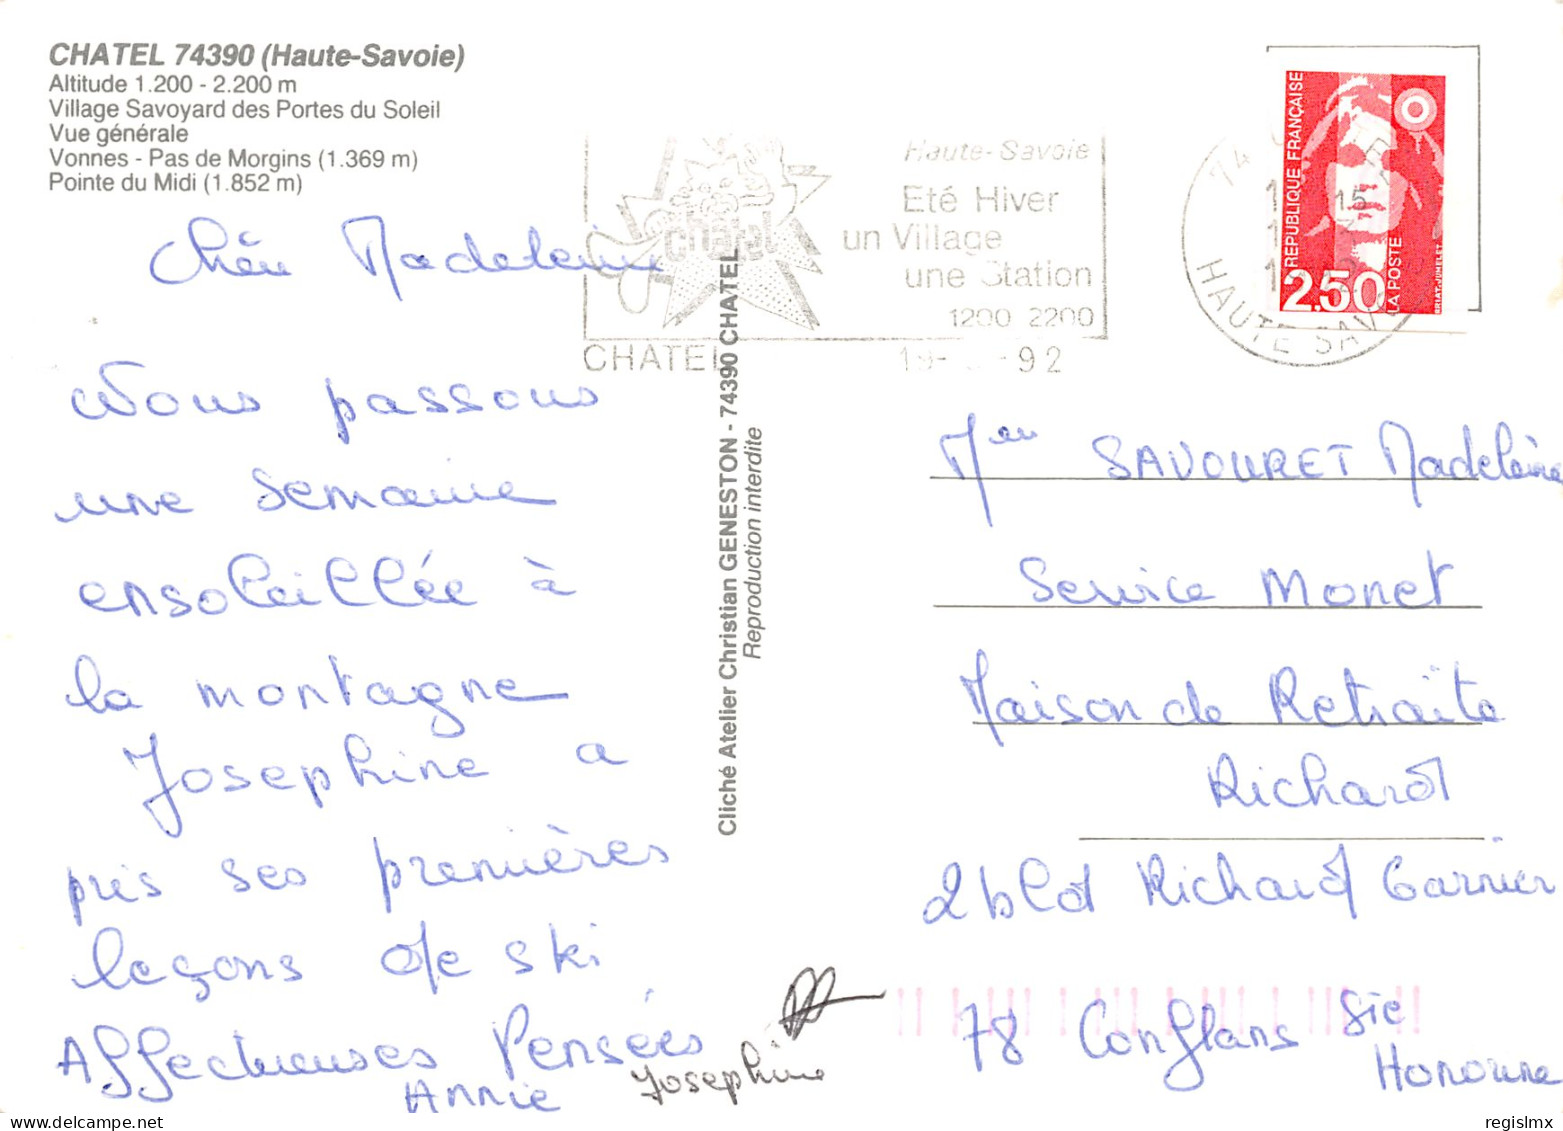 CHATEL 74390 (Haute-Savoie)
Altitude 1.200 - 2.200 m
Village Savoyard des Portes du Soleil
Vue générale
Vonnes - Pas de Morgins (1.369 m)
Pointe du Midi (1.852 m)
Chère Madeleine
Nous passons
une semaine
ensoleillée à
la montagne
Josephine a
pris ses premières
leçons de ski
Affectueuses Pensées
Annie
Josephine
Cliché Atelier Christian GENESTON - 74390 CHATEL
Reproduction interdite
chatel
Haute-Savoie
Eté Hiver
un Village
une Station
1200 2200
CHATEL
92
74
15
HAUTE SAVOIE
REPUBLIQUE FRANÇAISE
2,50
LA POSTE
BRIAT-JUMELET
SAVOURET Madeleine
Service Monet
Maison de Retraite
Richard
2 bld Richard Garnier
78 Conflans Ste
Honorine
regislmx